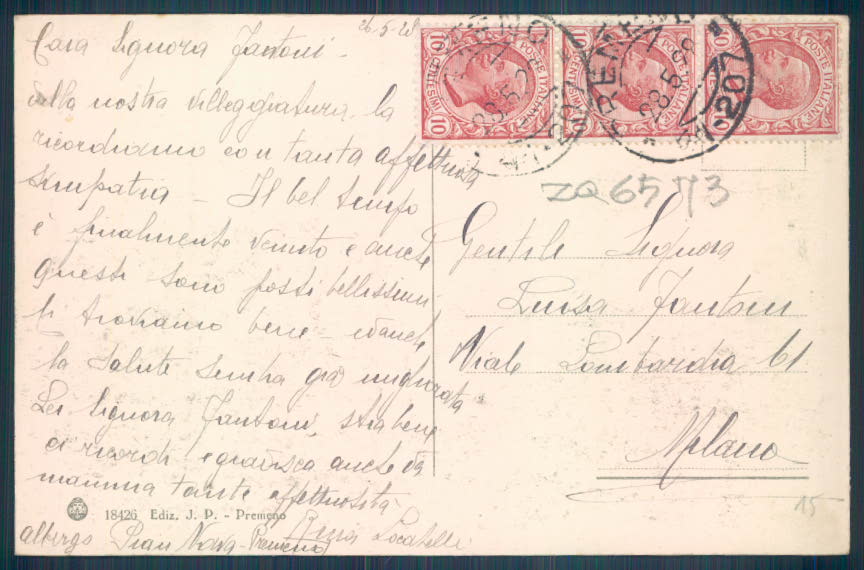 26-5-28
Cara Signora Fantoni -
dalla nostra villeggiatura la
ricordiamo con tanta affettuosa
simpatia - Il bel tempo
è finalmente venuto e anche
questi sono posti bellissimi
li troviamo bene - ed anche
la salute sembra già migliorata
Lei Signora Fantoni, stia bene
ci ricordi e gradisca anche da
mamma tante affettuosità
Locatelli
albergo Pian Nava - Premeno
18426 Ediz. J. P. - Premeno
10 CENTESIMI 10 POSTE ITALIANE
10 CENTESIMI 10 POSTE ITALIANE
10 POSTE ITALIANE
PREMENO
28.5.28
207
ZQ6573
Gentile Signora
Luisa Fantoni
Viale Lombardia 61
Milano
15